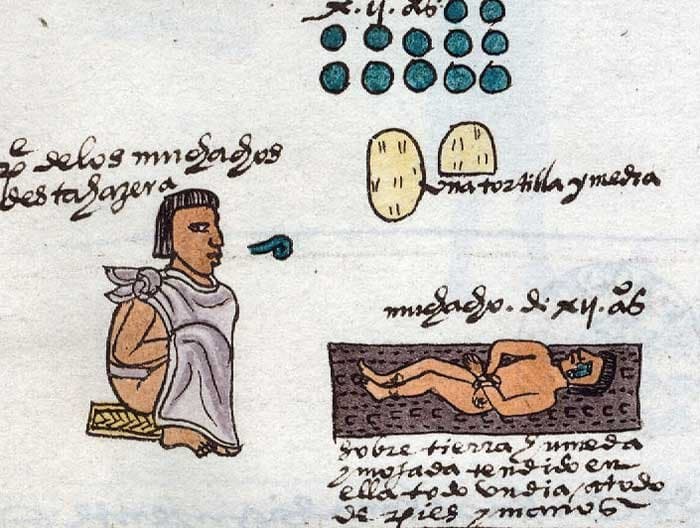 x.ii. años
pe de los muchachos
desta hazera
una tortilla y media
muchacho. de xii. años
sobre tierra humeda
y mojada tendido en
ella todo un dia / atado
de pies y manos